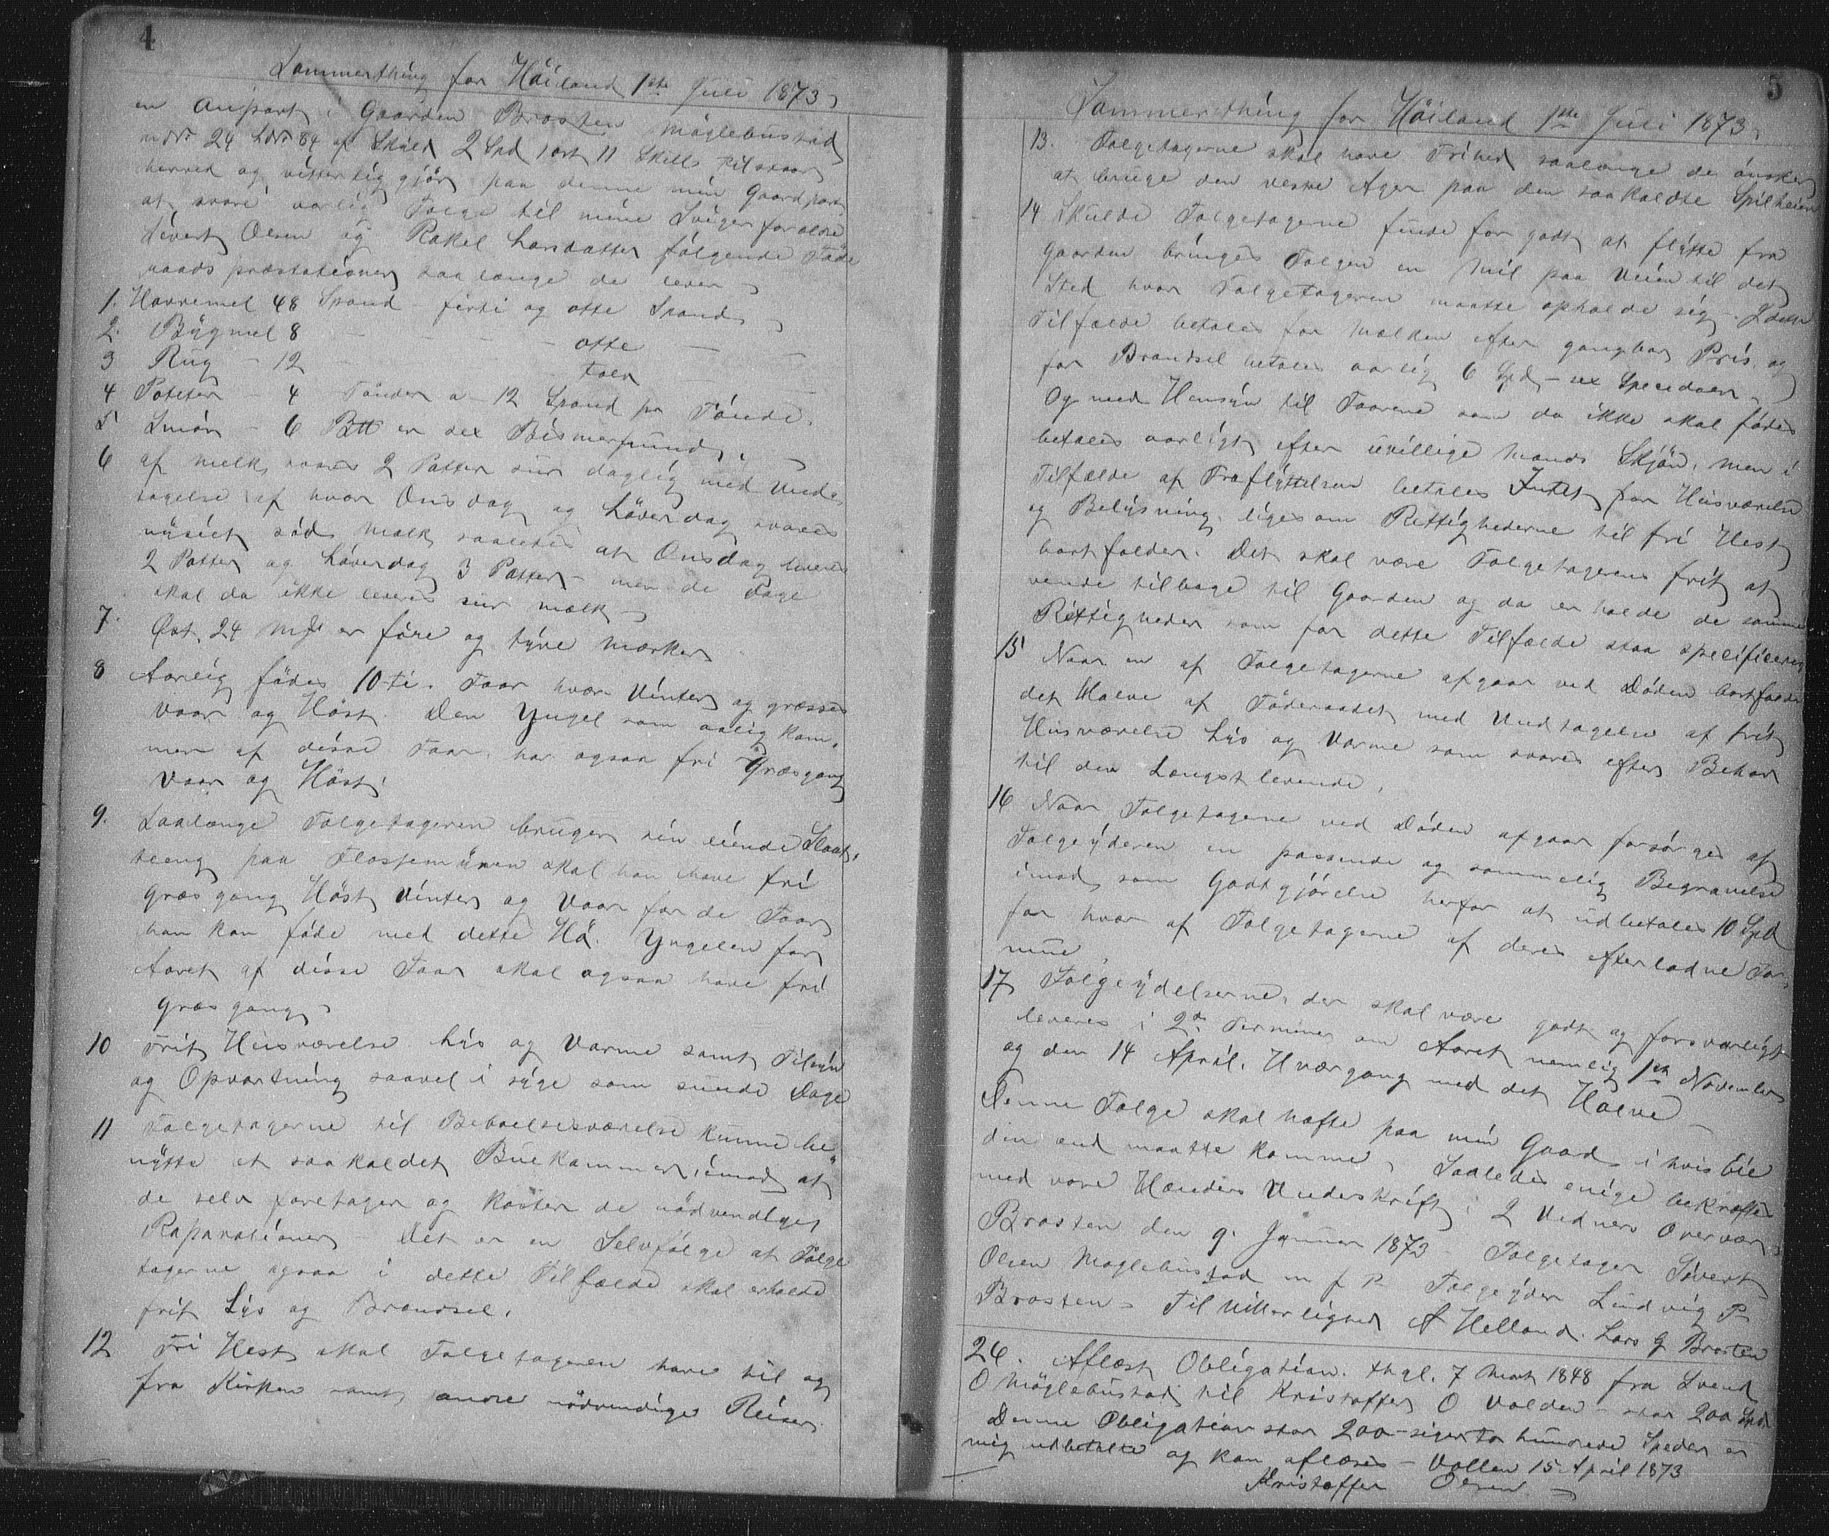 4
Sommerthing for Höiland 1ste Juli 1873
en Anpart i Gaarden Brosten Möglebustad
mNr 24 LNr 84 af Skyld 2 Spd 1 ort 11 Skill tilstaar
herved og vitterlig gjör paa denne min Gaardpart
at svare aarlig Folge til mine Svigerforældre
Sivert Olsen og Rakel Larsdatter fölgende Föde
raads præstationer saa længe de lever
1. Havremel 48 Spand firti og otte Spand
2. Bÿgmel 8 - - - - otte - -
3 Rug - 12 - - - tolv - -
4 Poteter - 4 Tönder a 12 Spand pr Tönde.
5 Smör - 6 Btt er sex Bismerpund.
6 af melk svares 2 Potter sur daglig med Unda-
tagelse af hvor Onsdag og Löverdag svares
nÿsiet söd melk saaledes at Onsdag leveres
2 Potter og Löverdag 3 Potter - men de Dage
skal da ikke leveres sur mælk
7. Ost 24 Mk er fire og tÿve mærker
8 Aarlig födes 10-ti. Faar hver Vinter og græsses
Vaar og Höst. Den Yngel som aalig kom-
mer af disse Faar, har ogsaa fri Græsgang
Vaar og Höst.
9. Saalænge Folgetageren bruger sin eiende Slaat-
teeng paa Flostemÿren skal han have fri
græsgang Höst Vinter og Vaar for de Faar
han kan föde med dette Hö. Yngelen for
Aaret af disse Faar skal ogsaa have fri
græsgang
10 Frit Husværelse Lÿs og Varme samt Tilsÿn
og Opvartning saavel i sÿge som sunde Dage
11 Folgetagerne til Beboelsesværelse kunne be-
nÿtte et saakaldet Buekammer, imod at
de selv foretager og koster de nödvendige
Raparationer - Det er en Selvfölge at Folge
tagerne ogsaa i dette Tilfælde skal erholde
frit Lÿs og Brændsel.
12 Fri Hest skal Folgetageren have til og
fra Kirken samt andre nödvendige Reiser.
5
Sommerthing for Höiland 1ste Juli 1873
13. Folgetagerne skal have Frihed saalænge de önsker
at bruge den vestre Ager paa den saakaldte Spilheien
14 Skulde Folgetagerne finde for godt at flÿtte fra
Gaarden bringes Folgen en Mil paa Veien til det
Sted hvor Folgetageren maatte opholde sig. I dette
Tilfælde betales for Mælken efter gangbar Pris og
for Brændsel betales aarlig 6 Spd - sex Speciedaler
Og med Hensÿn til Faarene som da ikke skal födes
betales aarligt efter uvillige Mænds Skjön, men i
Tilfælde af Fraflÿttelsen betales Intet for Husværelse
og Belÿsning, ligesom Rettighederne til fri Hest
bortfalder. Det skal være Folgetagerens frit at
vende tilbage til Gaarden og da erholde de samme
Rettigheder som for dette Tilfælde staa specificeres
15 Naar en af Folgetagerne afgaar ved Döden bortfalder
det Halve af Föderaadet med Undtagelse af frit
Husværelse Lÿs og Varme som svares efter Behov
til den Længstlevende.
16 Naar Folgetagerne ved Döden afgaar forsörges af
Folgeÿderen en passende og sommelig Begravelse
imod som Godtgjörelse herfor at udbetales 10 Spd
for hver af Folgetagerne af deres efterladne For-
mue
17 Folgeÿdelserne, der skal være godt og forsvarligt
leveres i 2de Terminer om Aaret nemlig 1ste November
og den 14 April. Hvergang med det Halve
Denne Folge skal hæfte paa min Gaard i hvis Eie
den end maatte komme. Saaledes enige bekræftes
med vore Hænders Underskrift i 2 Vidners Overvær
Brosten den 9. Januar 1873 - Folgetager Sivert
Olsen Moglebustad m f P Folgeÿder Lindvig P.
Brosten - Til Vitterlighed A Helland. Lars G Brosten
26. Aflæst Obligation. thgl. 7 Mart 1848 fra Svend
O Möglebustad til Kristoffer O Volden - stor 200 Spd
Denne Obligation stor 200 - siger to hundrede Speder er
mig udbetalte og kan aflæses - Vollen 15 April 1873
Kristoffer Olsen